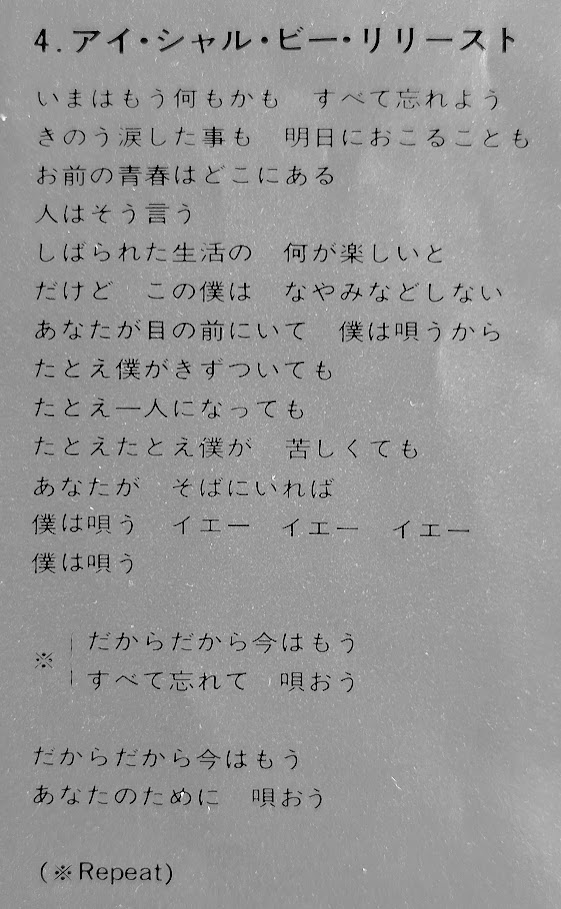 4.アイ・シャル・ビー・リリースト
いまはもう何もかも　すべて忘れよう
きのう涙した事も　明日におこることも
お前の青春はどこにある
人はそう言う
しばられた生活の　何が楽しいと
だけど　この僕は　なやみなどしない
あなたが目の前にいて　僕は唄うから
たとえ僕がきずついても
たとえ一人になっても
たとえたとえ僕が　苦しくても
あなたが　そばにいれば
僕は唄う　イエー　イエー　イエー
僕は唄う
※ だからだから今はもう
すべて忘れて　唄おう
だからだから今はもう
あなたのために　唄おう
(※Repeat)